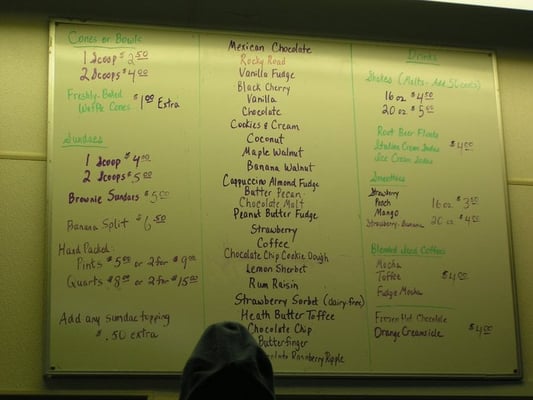 Cones or Bowls
1 Scoop $2.50
2 Scoops $4.00
Freshly-Baked
Waffle Cones $1.00 Extra
Sundaes
1 Scoop $4.00
2 Scoops $5.00
Brownie Sundaes $5.00
Banana Split $6.50
Hard Packed:
Pints $5.00 or 2 for $9.00
Quarts $8.00 or 2 for $15.00
Add any sundae topping
$.50 extra
Mexican Chocolate
Rocky Road
Vanilla Fudge
Black Cherry
Vanilla
Chocolate
Cookies & Cream
Coconut
Maple Walnut
Banana Walnut
Cappuccino Almond Fudge
Butter Pecan
Chocolate Malt
Peanut Butter Fudge
Strawberry
Coffee
Chocolate Chip Cookie Dough
Lemon Sherbet
Rum Raisin
Strawberry Sorbet (dairy-free)
Heath Butter Toffee
Chocolate Chip
Butterfinger
Chocolate Raspberry Ripple
Drinks
Shakes (Malts- Add 50 cents)
16 oz $4.50
20 oz $5.50
Root Beer Floats
Italian Cream Sodas $4.00
Ice Cream Sodas
Smoothies
Strawberry
Peach 16 oz $3.50
Mango
Strawberry-Banana 20 oz $4.00
Blended Iced Coffees
Mocha
Toffee $4.00
Fudge Mocha
Frozen Hot Chocolate
Orange Creamsicle $4.00